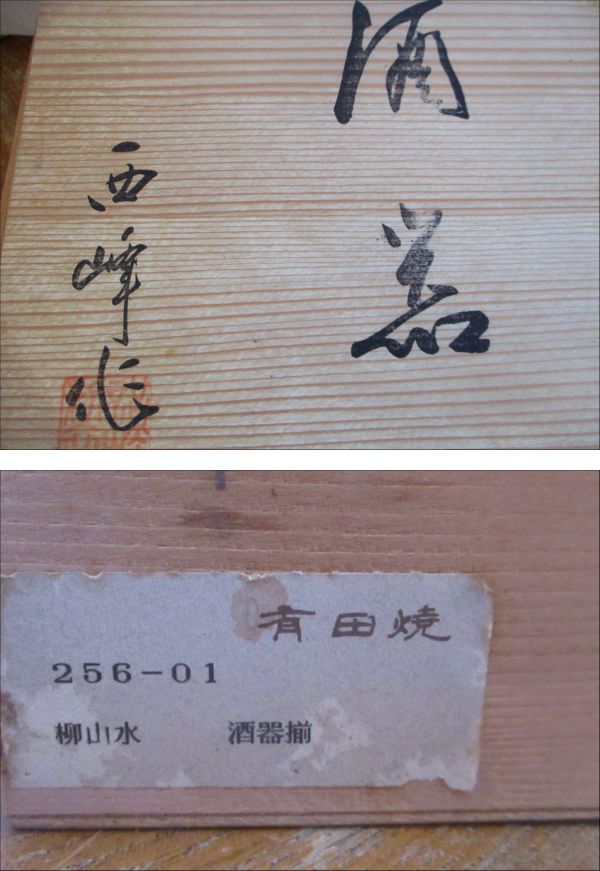 酒器
西峰作
有田焼
256-01
柳山水 酒器揃